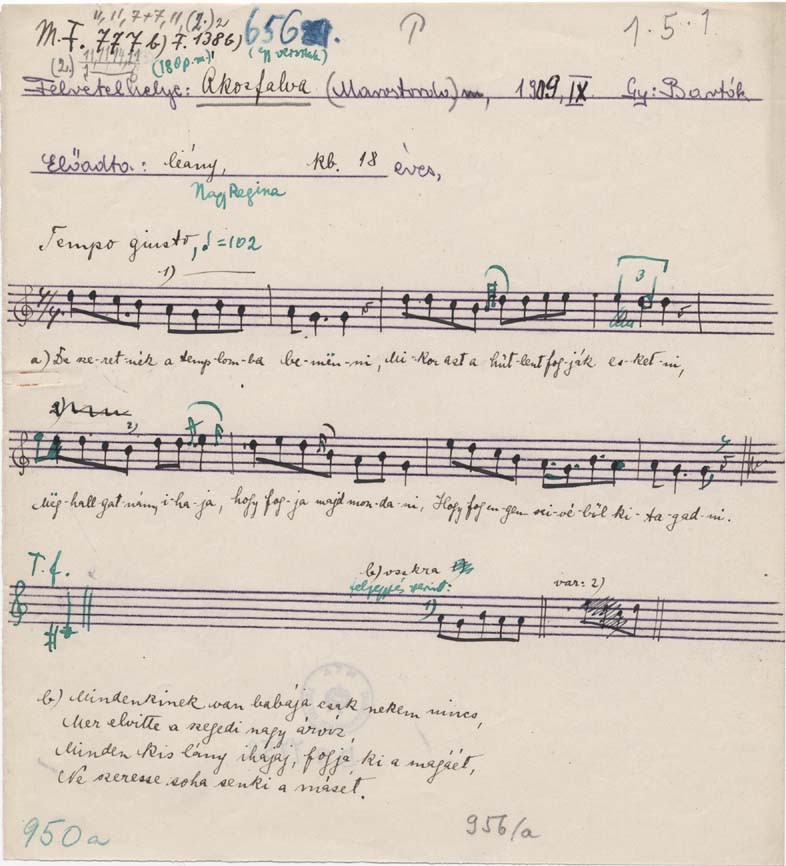 11, 11, 7+7, 11, (2.) 2
M. F. 777 b) F. 1386 b) 656.
1 · 5 · 1.
(2.) (180 p.m.) (4 versszak)
Felvétel helye: Ákosfalva (Marostorda) m, 1909, IX. Gy: Bartók
Előadta: leány, kb. 18 éves,
Nagy Regina
Tempo giusto, ♩ = 102
1)
3
a) De sze-ret-nék a temp-lom-ba be-mën-ni, Mi-kor azt a hűt-lent fog-ják es-ket-ni,
2)
Mëg-hall-gat-nám, i-ha-ja, hogy fog-ja majd mon-da-ni, Hogy fog en-gem szi-vé-ből ki-ta-gad-ni.
T. f.
b) var: 2)
1)
b) Mindenkinek van babája csak nekem nincs,
Mer elvitte a szegedi nagy árvíz,
Minden kis lány ihájaj, fogja ki a magáét,
Ne szeresse soha senki a másét.
950 a
956/a